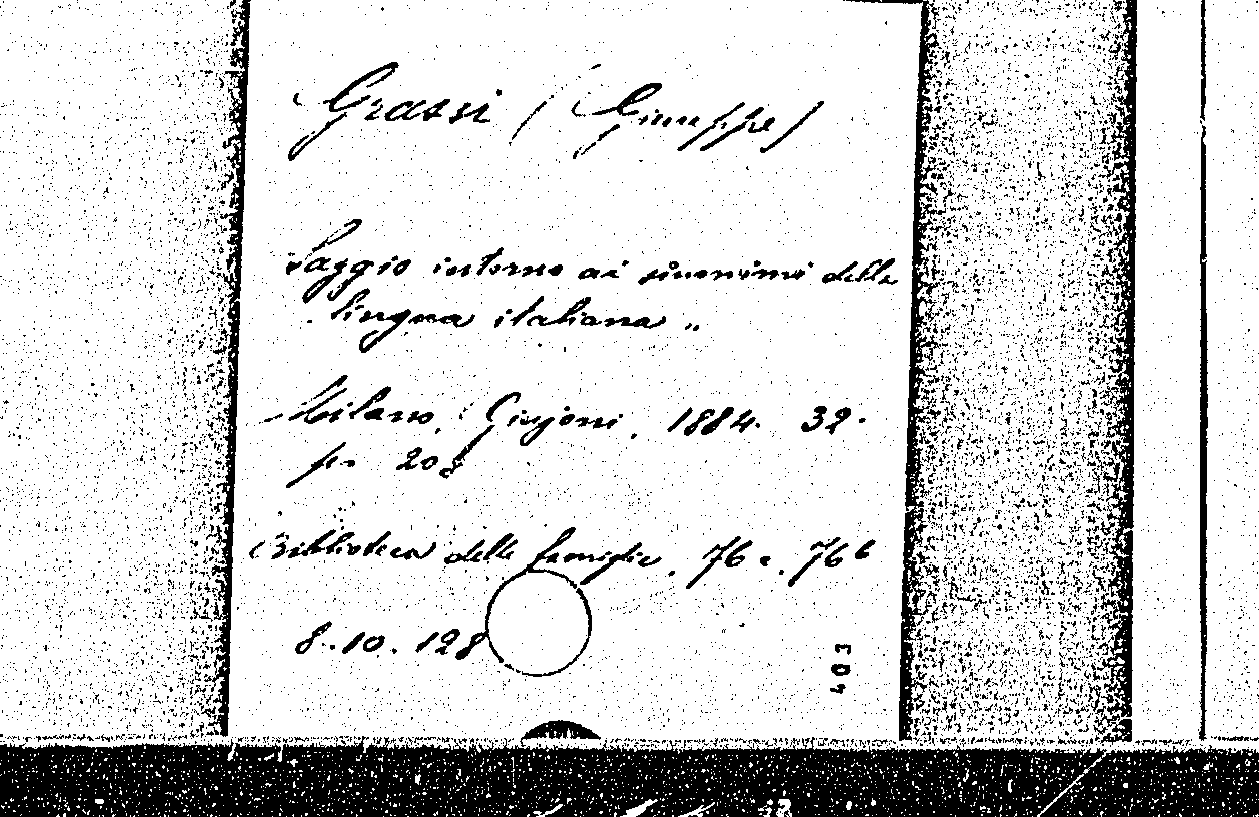 Grassi (Giuseppe)
Saggio intorno ai sinonimi della
lingua italiana „
Milano, Guigoni, 1884. 32.
p. 208
Biblioteca delle famiglie. 76 e. 76 b
8.-10. 128
403